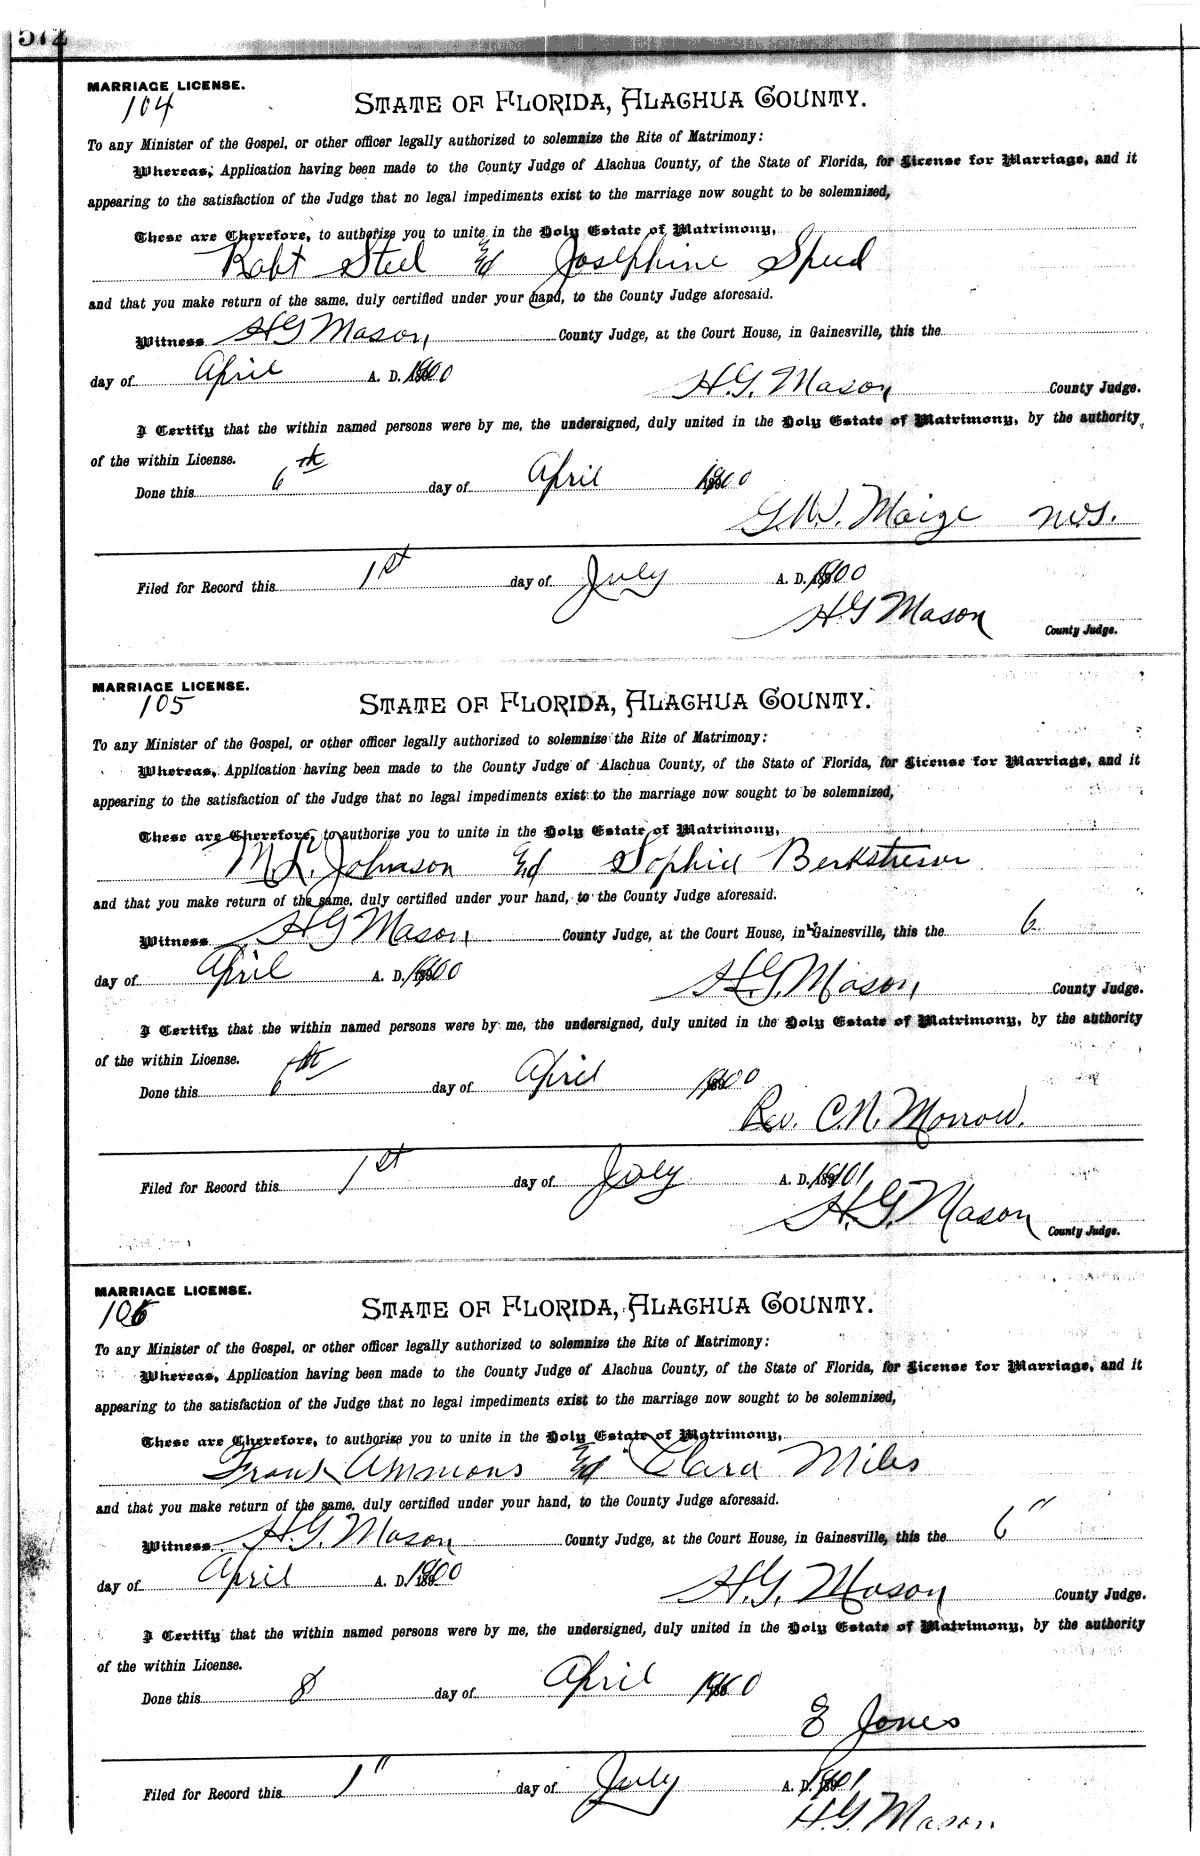 572
MARRIAGE LICENSE.
104
STATE OF FLORIDA, ALACHUA COUNTY.
To any Minister of the Gospel, or other officer legally authorized to solemnize the Rite of Matrimony:
Whereas, Application having been made to the County Judge of Alachua County, of the State of Florida, for License for Marriage, and it
appearing to the satisfaction of the Judge that no legal impediments exist to the marriage now sought to be solemnized,
These are Therefore, to authorize you to unite in the Holy Estate of Matrimony,
Robt Steel and Josephine Speed
and that you make return of the same, duly certified under your hand, to the County Judge aforesaid.
Witness H G Mason County Judge, at the Court House, in Gainesville, this the
day of April A. D. 1900
H. G. Mason County Judge.
I Certify that the within named persons were by me, the undersigned, duly united in the Holy Estate of Matrimony, by the authority
of the within License.
Done this 6th day of April 1900
G. W. Maize
Filed for Record this 1st day of July A. D. 1900
H. G Mason
County Judge.
MARRIAGE LICENSE.
105
STATE OF FLORIDA, ALACHUA COUNTY.
To any Minister of the Gospel, or other officer legally authorized to solemnize the Rite of Matrimony:
Whereas, Application having been made to the County Judge of Alachua County, of the State of Florida, for License for Marriage, and it
appearing to the satisfaction of the Judge that no legal impediments exist to the marriage now sought to be solemnized,
These are Therefore, to authorize you to unite in the Holy Estate of Matrimony,
M. L. Johnson and Sophia Berkstresser
and that you make return of the same, duly certified under your hand, to the County Judge aforesaid.
Witness H G Mason County Judge, at the Court House, in Gainesville, this the 6
day of April A. D. 1900
H. G. Mason County Judge.
I Certify that the within named persons were by me, the undersigned, duly united in the Holy Estate of Matrimony, by the authority
of the within License.
Done this 6th day of April 1900
Rev. C. N. Morrow.
Filed for Record this 1st day of July A. D. 1901
H. G. Mason
County Judge.
MARRIAGE LICENSE.
106
STATE OF FLORIDA, ALACHUA COUNTY.
To any Minister of the Gospel, or other officer legally authorized to solemnize the Rite of Matrimony:
Whereas, Application having been made to the County Judge of Alachua County, of the State of Florida, for License for Marriage, and it
appearing to the satisfaction of the Judge that no legal impediments exist to the marriage now sought to be solemnized,
These are Therefore, to authorize you to unite in the Holy Estate of Matrimony,
Frank Ammons and Clara Miles
and that you make return of the same, duly certified under your hand, to the County Judge aforesaid.
Witness H. G. Mason County Judge, at the Court House, in Gainesville, this the 6"
day of April A. D. 1900
H. G. Mason County Judge.
I Certify that the within named persons were by me, the undersigned, duly united in the Holy Estate of Matrimony, by the authority
of the within License.
Done this 8 day of April 1900
E Jones
Filed for Record this 1" day of July A. D. 1901
H. G. Mason